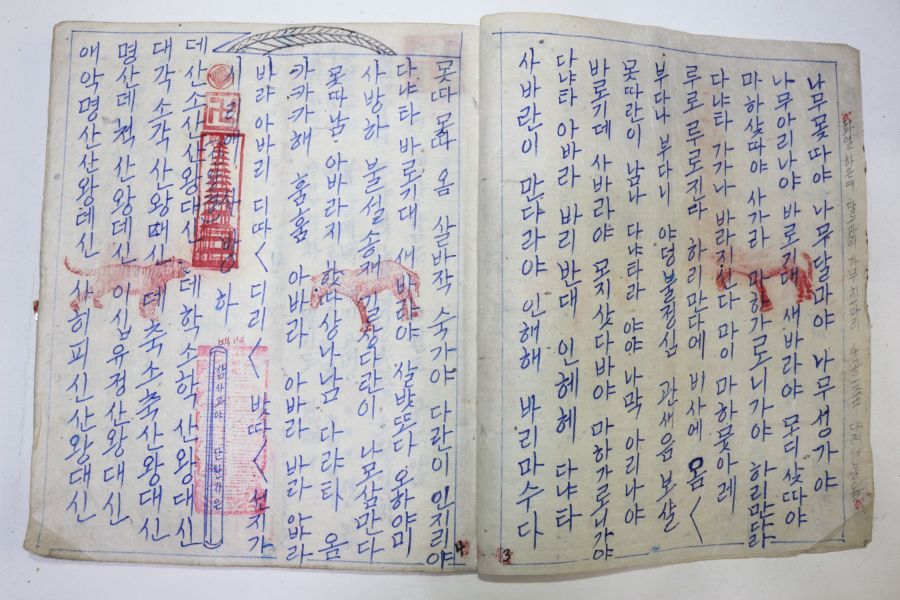 나무못따야 나무달마야 나무성가야
나무아리나야 바로기대 새바라야 모디삿따야
마하삿따야 사가라 마항가로니가야 하리만다라
다냐타 가가나 마이 마하뭇아레
루로루로진라 하리만다에 비사에 옴〱
부다나 부다니 야덩불정심 관새음보살
못따란이 남나 다냐타라 야야 나막 아리나야
바로기데 사바라야 모지삿다바야 마하가로니가야
다냐타 아바라 바리반대 인헤헤 다냐타
사바란이 만다라야 인해해 바리마수다
3
못따 모따 옴 살바작 수가야 다란이 인지리야
다냐타 바로기대 새바라야 살뱟또다 오하야미
사방하 불설송재길상다란이 나모삼만다
못따남 아바라지 하따상나남 다랴타 옴
카카카해 훔훔 아바라 아바라 바라 아바라
바랴아바리 디따〱 디리〱 빗따〱 선지가
시리에 사방하
데산소산산왕대신 데학소학산왕대신
대각소각산왕때신 데축소축산왕대신
명산데처산왕데신 이십유정산왕대신
애악명산산왕데신 사히피신산왕대신
4